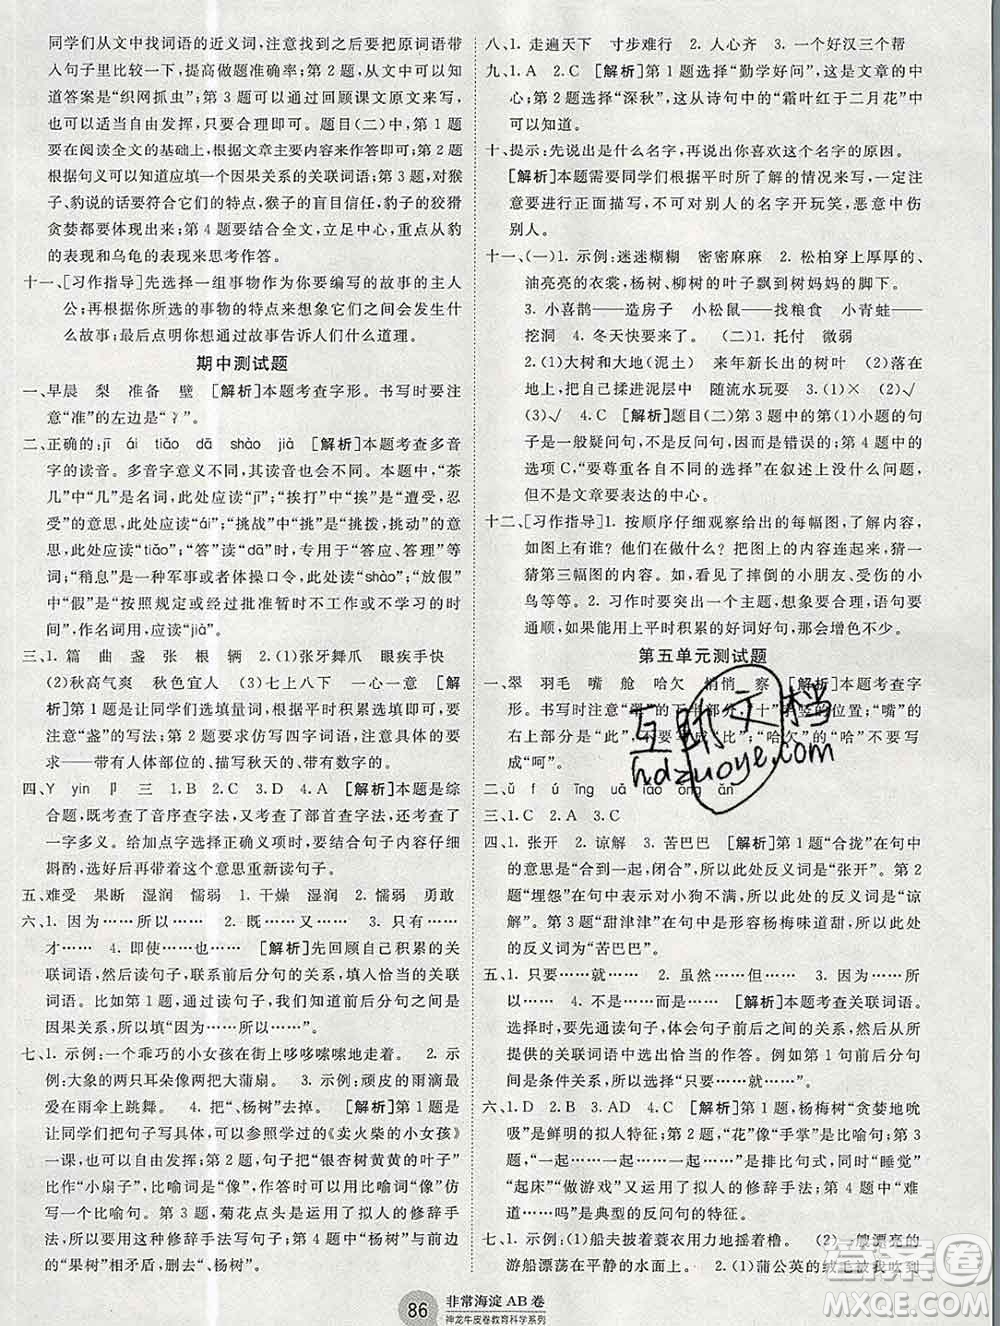 同学们从文中找词语的近义词,注意找到之后要把原词语带
入句子里比较一下,提高做题准确率;第2题,从文中可以知
道答案是“织网抓虫”;第3题可以通过回顾课文原文来写,
也可以适当自由发挥,只要合理即可。题目(二)中,第1题
要在阅读全文的基础上,根据文章主要内容作答即可;第2题
根据句义可以知道应填一个因果关系的关联词语;第3题,猴
子、豹说的话要符合它们的特点,猴子的盲目信任,豹子的狡猾
贪婪都要体现出来;第4题要结合全文,立足中心,重点从豹
的表现和乌龟的表现来思考作答。
十一、[习作指导]先选择一组事物作为你要编写的故事的主人
公;再根据你所选的事物的特点来想象它们之间会发生什
么故事;最后点明你想用这个故事告诉人们什么道理。
期中测试题
一、早晨 梨 准备 壁 [解析]本题考查字形。书写时要注
意“准”的左边是“冫”。
二、正确的:jī ái tiǎo dā shào jià [解析]本题考查多音
字的读音。多音字意义不同,读音也不同。本题中,“茶
几”中“几”是名词,此处应读“jī”;“挨打”中“挨”是“遭受,忍
受”的意思,此处应读“ái”;“挑战”中“挑”是“挑拨,挑动”的意
思,此处应读“tiǎo”;“答”读“dā”时,用于“答应、答理”等词
语;“稍息”是一种军事或者体操口令,此处应读“shào”;“放假”
中“假”是“按照规定或经过批准暂时不工作或不学习的时
间”,作名词用,应读“jià”。
三、1. 篇 曲 盏 张 根 辆 2.(1)张牙舞爪 眼疾手快
(2)秋高气爽 秋色宜人 (3)七上八下 一心一意 [解
析]第1题让同学们选填量词,可以用排除法选填即可。注
意“盏”的写法;第2题要求仿写四字词语,注意词语的特点
——带有人体部位的、描写秋天的、带有数字的。
四、Y yin 卩 三 1. B 2. C 3. D 4. A [解析]本题是综
合题,既考查了音序查字法,又考查了部首查字法,同时考查了
一字多义。给加点字选择正确解释,要联系句子和词语仔细
斟酌,然后带着这个意思重新读句子。
五、难受 果断 湿润 懦弱 1. 干燥 湿润 2. 懦弱 勇敢
六、1. 因为……所以…… 2. 既……又…… 3. 只有……
才…… 4. 即使……也…… [解析]先回顾自己积累的关
联词语,然后读句子,注意前后分句的关系,填入恰当的关联
词语。比如第1题,读句子,发现句子的前后分句之间是
因果关系,所以填“因为……所以……”。
七、1. 示例:一个乖巧的小女孩在街上哆哆嗦嗦地走着。 2. 示
例:大象的两只耳朵像两个大蒲扇。 3. 示例:顽皮的雨滴爱
在雨伞上跳舞。 4. 把“、杨树”去掉。 [解析]第1题是
让同学们把句子写具体,可以结合学过的《卖火柴的小女孩》
一课,把句子写具体即可。第2题,把“银杏树黄黄的叶子”
比作“小扇子”,比喻词是“像”,作答时可以联系生活经历写
出一个比喻句。第3题,菊花点头这里运用了拟人的修辞手
法,所以要用这种修辞手法完成句子。第4题“杨树”与前边
的“果树”相矛盾,删去“、杨树”。
八、1. 走遍天下 寸步难行 2. 人心齐 3. 一个好汉三个帮
九、1. A 2. C [解析]第1题选“勤学好问”,这是文章的中
心;第2题选“深秋”,这从诗句中的“霜叶红于二月花”中可
以知道。
十、提示:先说出是什么名字,再说出你喜欢这个名字的原因。
[解析]本题需要同学们根据平时了解的情况来写,要注意
进行正面描写,不可对别人的名字开玩笑,恶意中伤
别人。
十一、(一)1. 示例:迷迷糊糊 密密麻麻 2. 松柏穿上厚厚的、
油亮亮的衣裳,杨树、柳树的叶子飘到树妈妈的脚下。
3. 小喜鹊——造房子 小松鼠——找粮食 小青蛙——
挖洞 4. 冬天快要来了。 (二)1. 托付 微弱
2.(1)大树和大地(泥土) 来年新长出的树叶 (2)落在
地上,把自己揉进泥层中 随流水玩耍 3.(1)× (2)√
(3)√ 4. C [解析]题目(二)第3题中的第(1)小题的句
子是一般疑问句,不是反问句,因而是错误的;第4题中的
选项C,“要尊重各自不同的选择”在叙述上没什么问题,
但不是文章要表达的中心。
十二、[习作指导]1. 按顺序仔细观察给出的每幅图,了解每幅
图中有谁?他们在干什么?把图中的内容连起来,猜一
猜第三幅图的内容。比如,看到了摔倒的小朋友、受伤的小
鸟等等。2. 习作时要突出一个主题,想象要合理,语句要
通顺,如果用上平时积累的好词好句,会使文章更加出彩。
第五单元测试题
一、翠 羽毛 嘴 舱 哈欠 悄悄 察 [解析]本题考查字
形。书写时注意“翠”的下半部分,“十”字竖的位置;“嘴”的
右上部分是“此”,不要写成“比”;“哈欠”的“哈”不要写
成“呵”。
二、ǔ fú īng uà iào óng ān
三、1. C 2. A 3. C
四、1. 张开 2. 谅解 3. 苦巴巴 [解析]第1题“合拢”在句中
的意思是“合到一起,闭合”,所以此处反义词是“张开”。第
2题“埋怨”在句中表示对小狗不满,所以此处反义词是“谅
解”。第3题“甜津津”在句中是形容杨梅味道甜,所以此处
的反义词为“苦巴巴”。
五、1. 只要……就…… 2. 虽然……但…… 3. 因为……所
以…… 4. 不是……而是…… [解析]本题考查关联词语。
选择时,要先注意句子前后之间的关系,然后再从
提供的关联词语中选出恰当的作答。例如第1句前后分句
之间是条件关系,所以应选择“只要……就……”。
六、1. D 2. B 3. C 4. A [解析]第1题,杨梅树“贪婪地吮
吸”是鲜明的拟人特征;第2题,“花”像“手掌”是比喻句,第
3题“一起……一起……一起……”是排比句式,同时“睡觉”
“起床”“做游戏”也运用了拟人的修辞手法;第4题中“难
道……吗”是典型的反问句的特征。
七、1. 示例:(1)船夫披着蓑衣用力地摇着橹。 (2)一艘漂亮的
游船漂荡在平静的水面上。 2.(1)蒲公英的绒毛被我吹到
互助文档
hdzuoye.com
86
非常海淀 AB 卷
神龙牛皮卷教育科学系列
答案圈
MXQE.COM